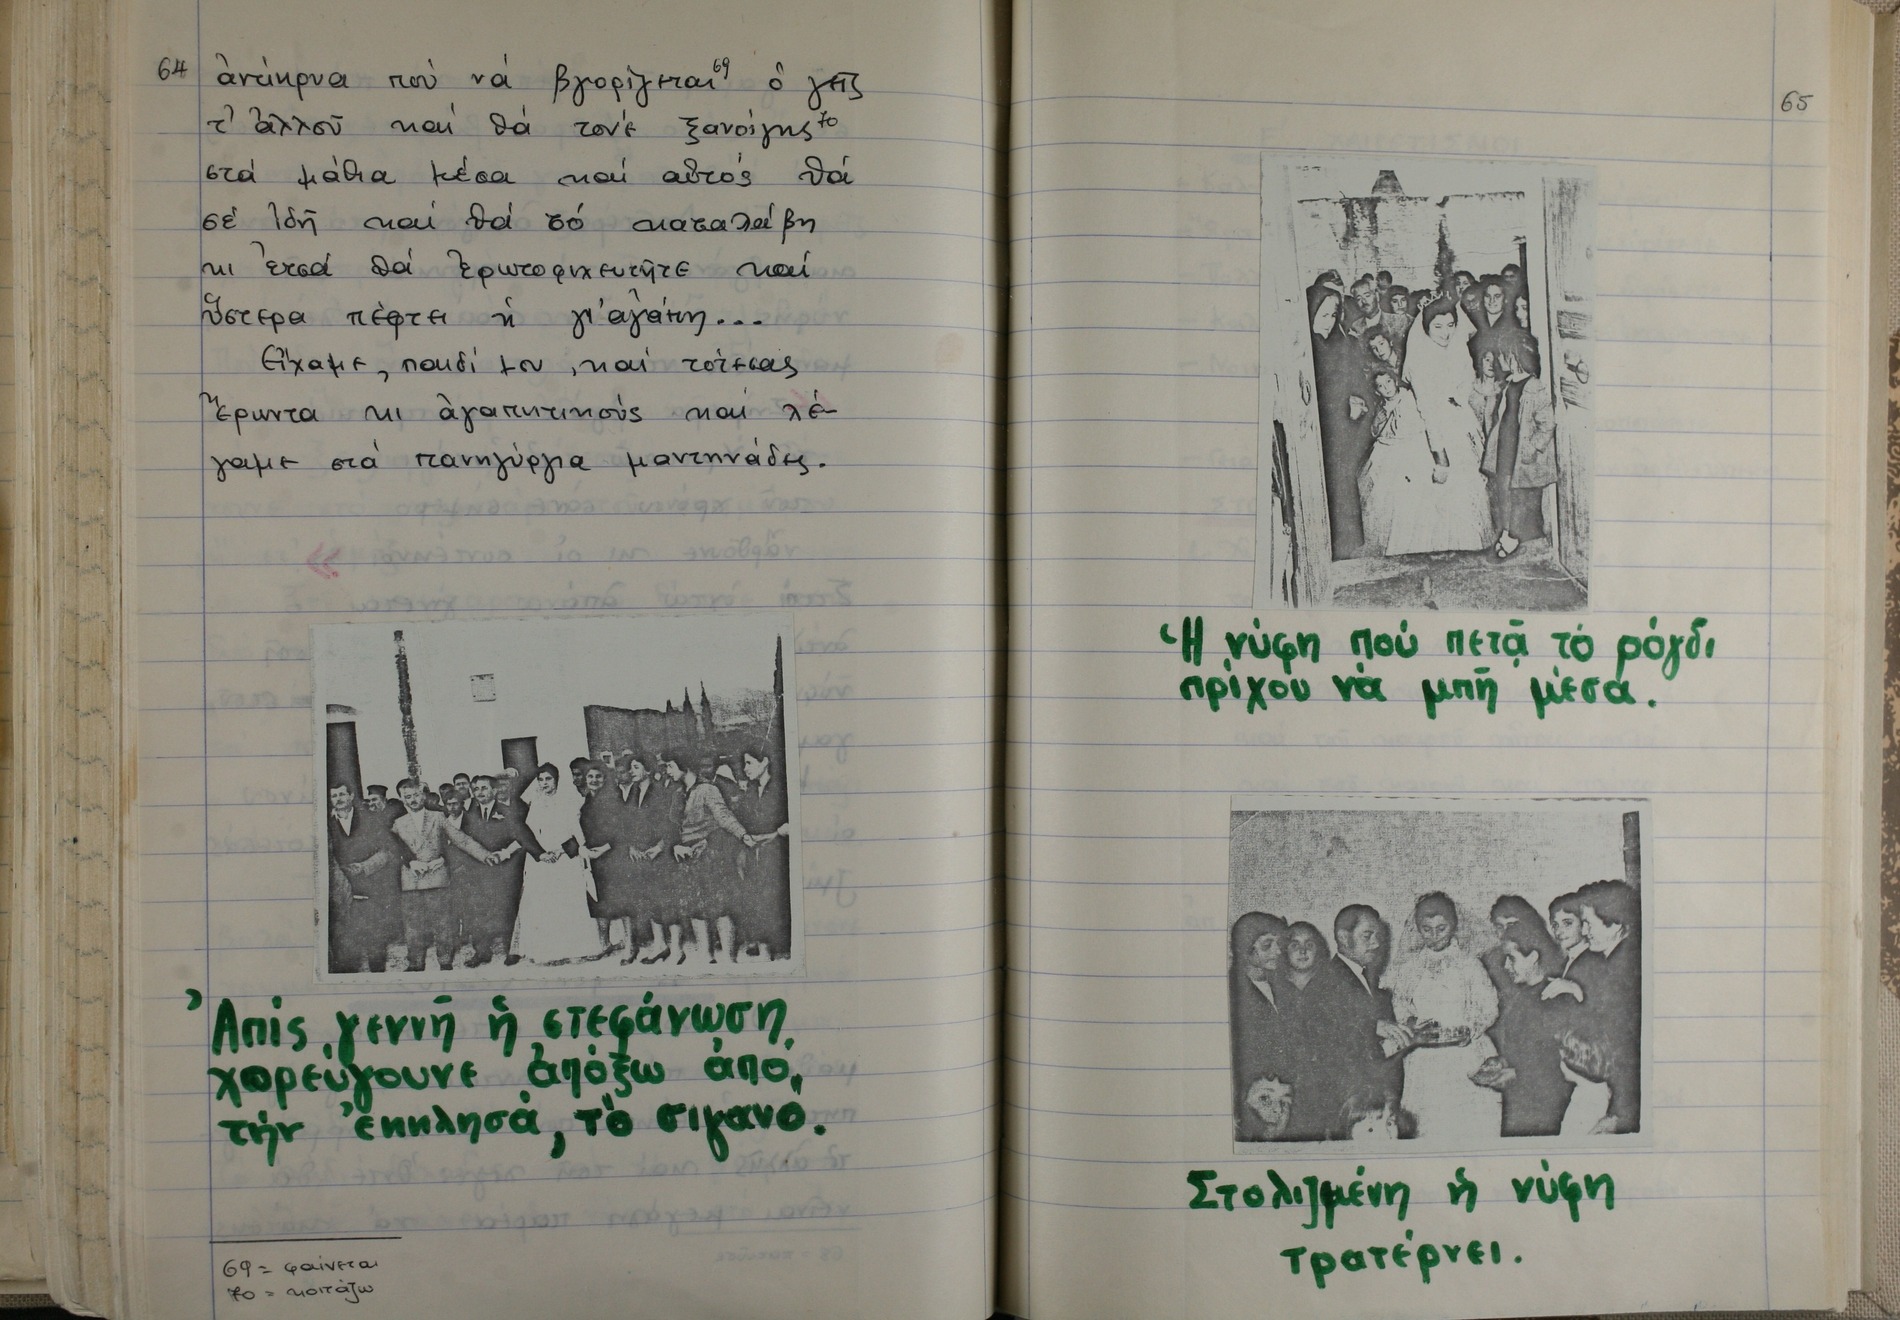 64
ἀντίκρυα πού νά βγορίζεται⁶⁹ ὁ γεῖς
τ' ἀλλοῦ καί θά τονέ ξανοίγης⁷⁰
στά μάθια μέσα καί αὐτός θά
σέ ἰδῆ καί θά τό καταλάβη
κι ἐτσά θά ἐρωτοφιχευτῆτε καί
ὕστερα πέφτει ἡ γι' ἀγάπη...
Εἴχαμε, παιδί μου, καί τότεσας
ἔρωντα κι ἀγαπητικούς καί λέ-
γαμε στά πανηγύργια μαντηνάδες.
Ἀπίς γεννῆ ἡ στεφάνωση
χορεύγουνε ἀπόξω ἀπό
τήν ἐκκλησά, τό σιγανό.
69 = φαίνεται
70 = κοιτάζω
65
Ἡ νύφη πού πετᾷ τό ρόγδι
πρίχου νά μπῆ μέσα.
Στολιζμένη ἡ νύφη
τρατέρνει.